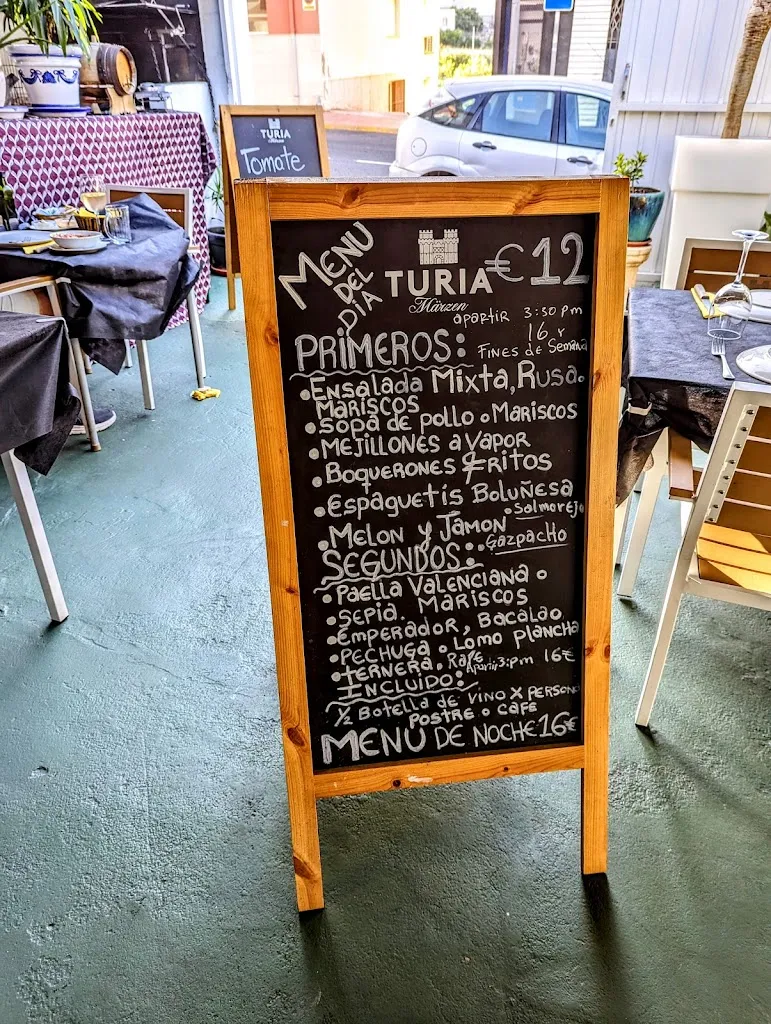 TURIA
Märzen
Tomate
MENU
DEL
DIA
TURIA
Märzen
€12
apartir 3:30 pm
16 y
Fines de Semana
PRIMEROS:
•Ensalada Mixta, Rusa.
Mariscos
•Sopa de pollo o Mariscos
•Mejillones a vapor
•Boquerones fritos
•Espaguetis Boluñesa
•Salmorejo
•Melon y Jamon
•Gazpacho
SEGUNDOS:
•Paella Valenciana o
Mariscos
•Sepia.
•Emperador, Bacalao
•Pechuga o Lomo plancha
•Ternera. Rape Apartir 3:pm 16€
INCLUIDO:
½ Botella de vino x persona
Postre o cafe
MENU DE NOCHE 16€